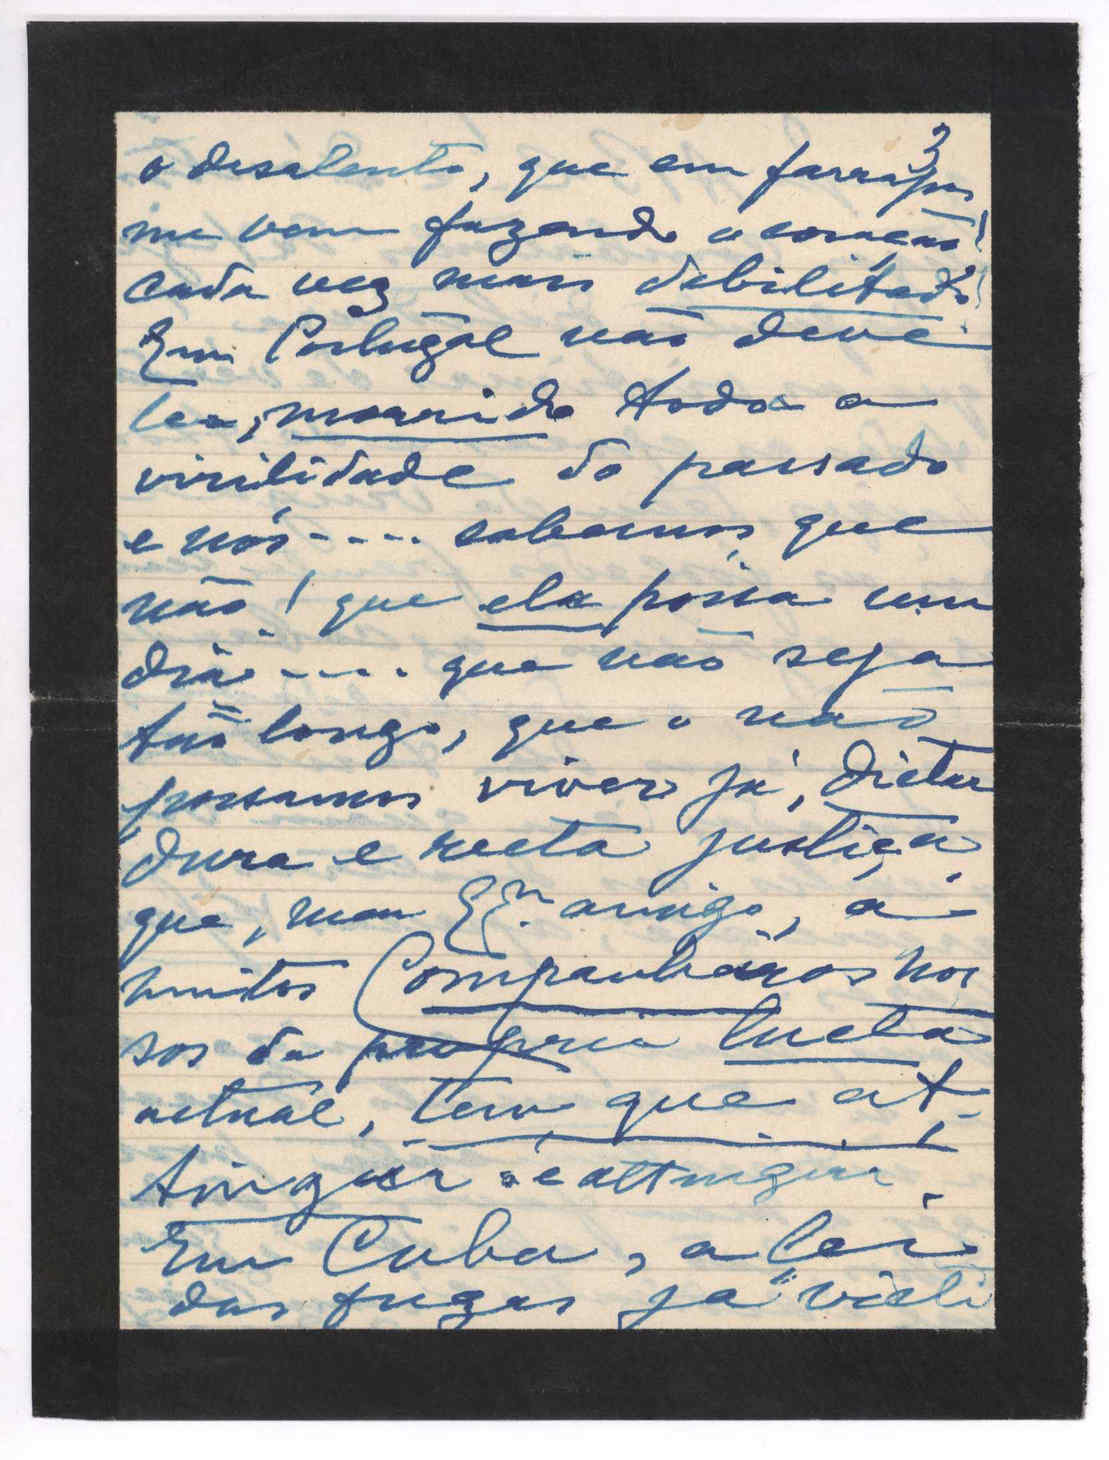 3
o desalento, que em farrapos
me vem fazendo o coração!
cada vez mais debilitado!
Em Portugal não deve
ter, morrido toda a
virilidade do passado
e nós.... sabemos, que
não! que ela possa um
dia.... que não seja
tão longo, que o não
possamos viver já, dictar
dura e recta justiça,
que, meu Exº amigo, a
muitos Companheiros nos
sos da propria lucta
actual, tem que at
tinguir e attinguir.
Em Cuba, a lei
das fugas já